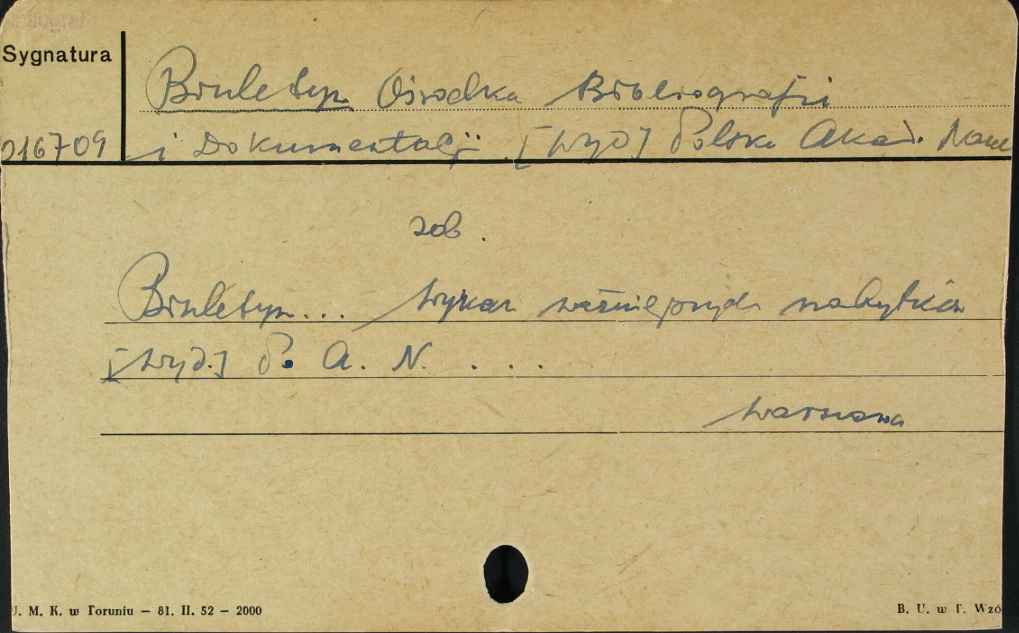 Sygnatura
Biuletyn Ośrodka Bibliografii
016709 i Dokumentacji [wyd] Polska Akad. Nauk
zob.
Biuletyn... Wykaz ważniejszych nabytków
[wyd.] P. A. N. . . . .
Warszawa
U. M. K. w Toruniu — 81. II. 52 — 2000
B. U. w T. Wzó